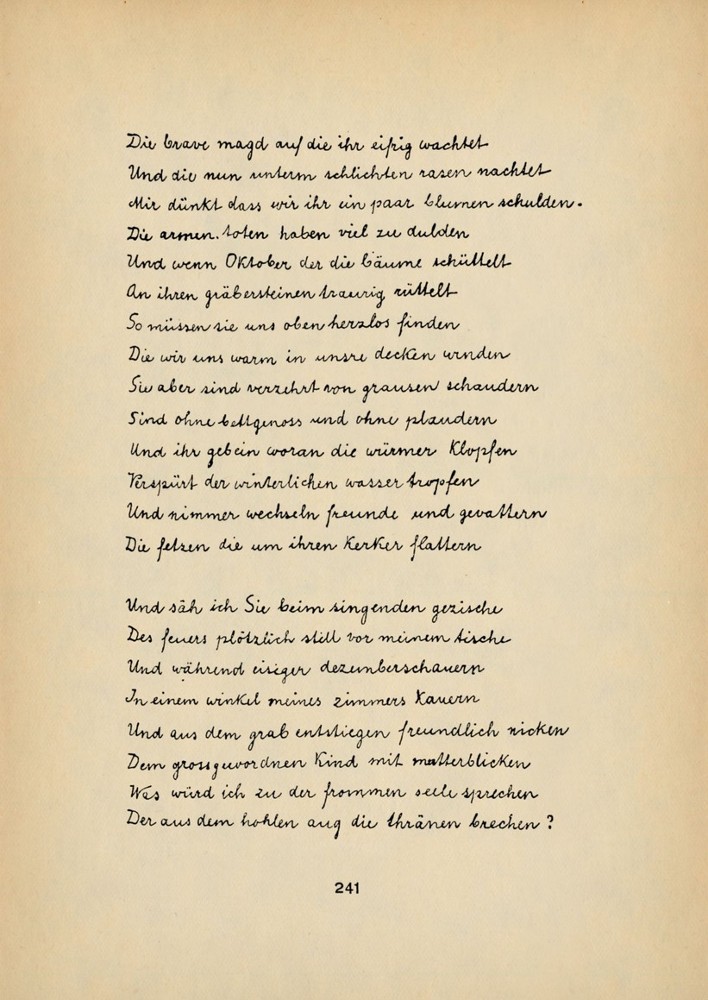 Die brave magd auf die ihr eifrig wachtet
Und die nun unterm schlichten rasen nachtet
Mir dünkt dass wir ihr ein paar blumen schulden.
Die armen. toten haben viel zu dulden
Und wenn Oktober der die bäume schüttelt
An ihren gräbersteinen traurig rüttelt
So müssen sie uns oben herzlos finden
Die wir uns warm in unsre decken winden
Sie aber sind verzehrt von grausen schaudern
Sind ohne bettgenoss und ohne plaudern
Und ihr gebein woran die würmer klopfen
Verspürt der winterlichen wasser tropfen
Und nimmer wechseln freunde und gevattern
Die fetzen die um ihren kerker flattern

Und säh ich Sie beim singenden gezische
Des feuers plötzlich still vor meinem tische
Und während eisiger dezemberschauern
In einem winkel meines zimmers kauern
Und aus dem grab entstiegen freundlich nicken
Dem grossgewordnen kind mit mutterblicken
Was würd ich zu der frommen seele sprechen
Der aus dem hohlen aug die thränen brechen?
241